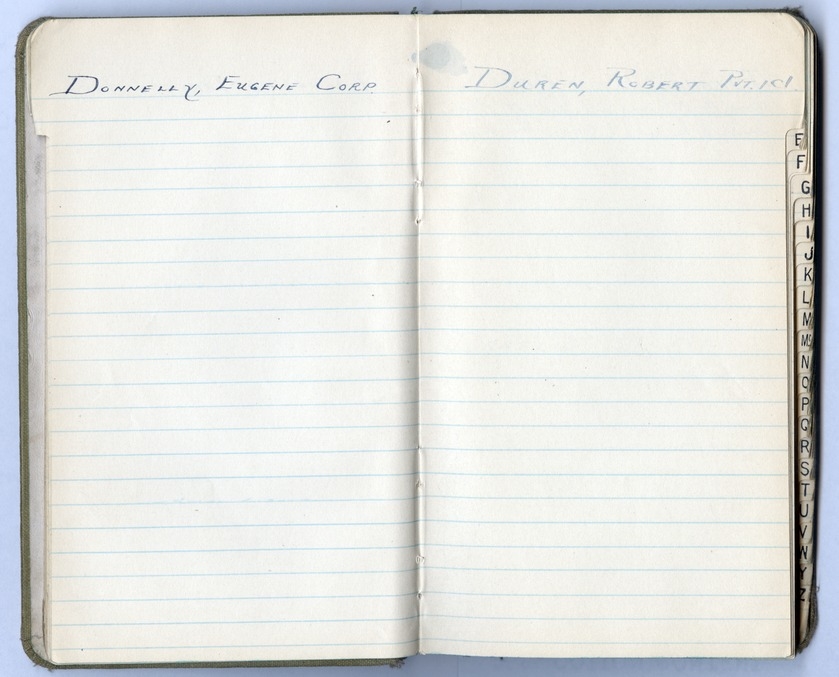 Donnelly, Eugene Corp.
Duren, Robert Pvt. 1Cl.
E
F
G
H
I
J
K
L
M
Mc
N
O
P
Q
R
S
T
U
V
W
Y
Z